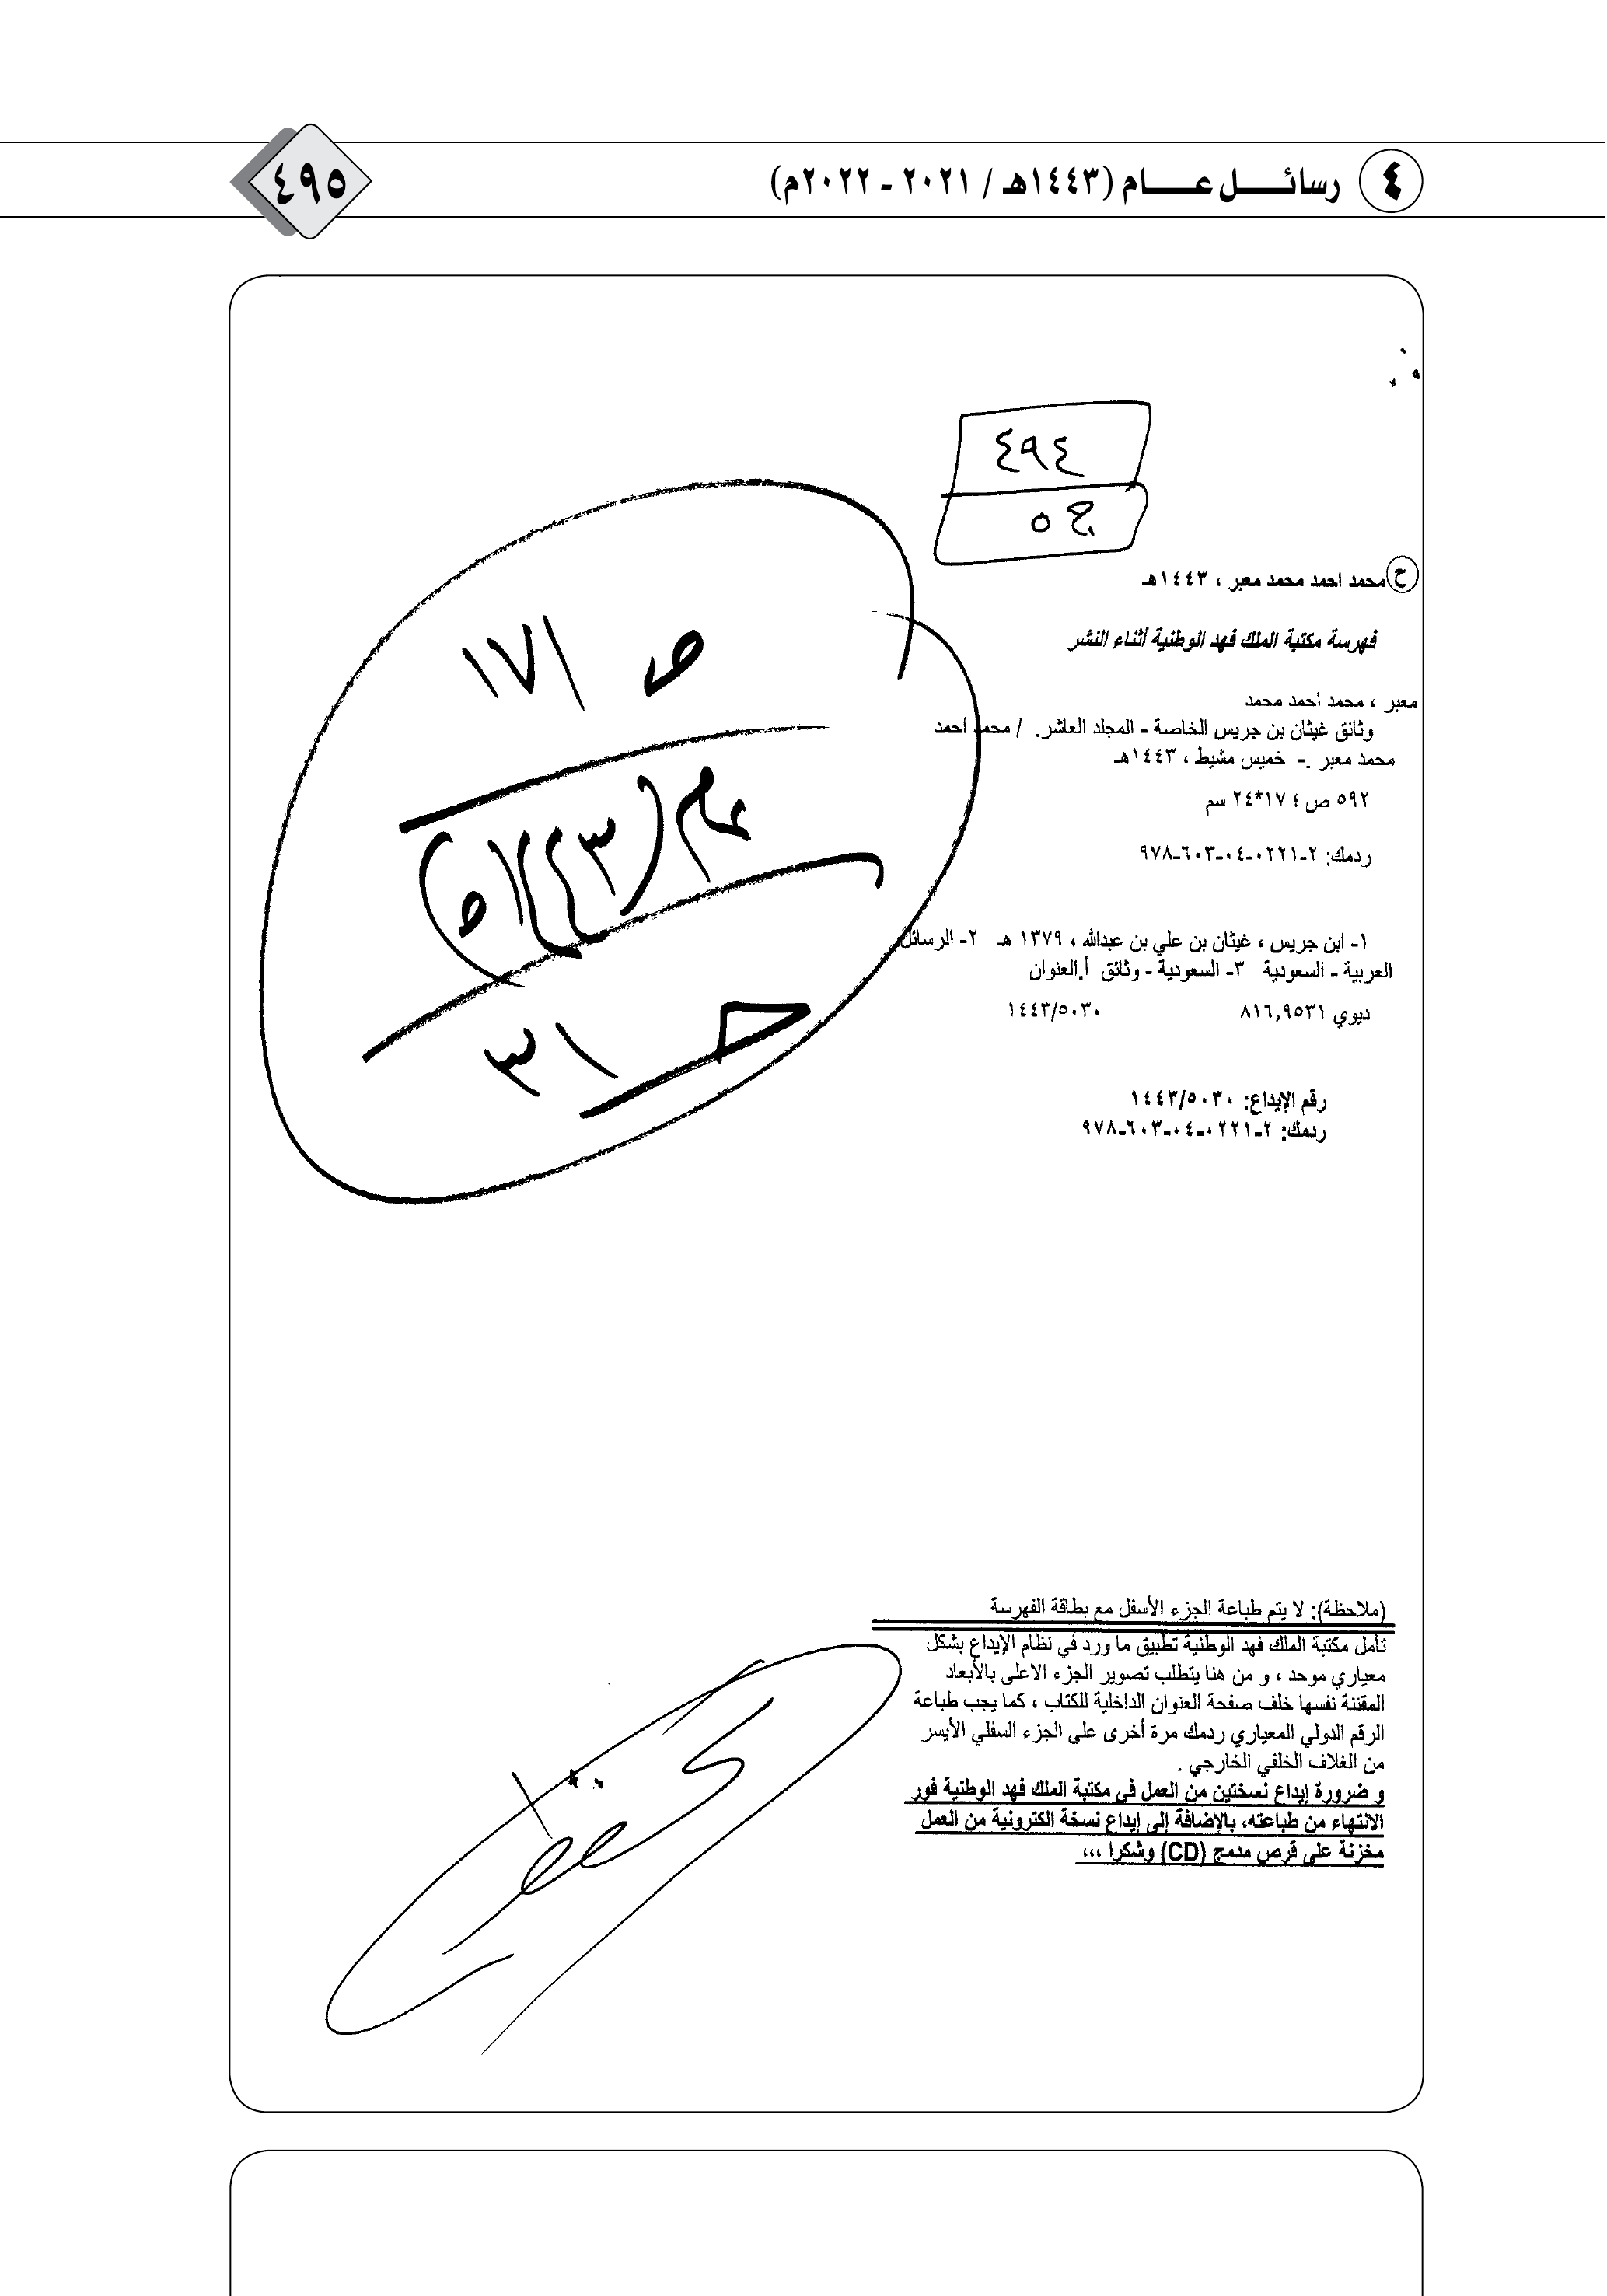 ٤ رسائــــل عــــــام (١٤٤٣هـ / ٢٠٢١ ـ ٢٠٢٢م)
٤٩٥
٤٩٤
ج ٥
ح محمد احمد محمد معبر ، ١٤٤٣هـ
فهرسة مكتبة الملك فهد الوطنية أثناء النشر
معبر ، محمد احمد محمد
وثائق غيثان بن جريس الخاصة - المجلد العاشر. / محمد احمد
محمد معبر .- خميس مشيط ، ١٤٤٣هـ
٥٩٢ ص ؛ ١٧*٢٤ سم
ردمك: ٢-٠٢٢١-٠٤-٦٠٣-٩٧٨
١- ابن جريس ، غيثان بن علي بن عبدالله ، ١٣٧٩ هـ ٢- الرسائل
العربية - السعودية ٣- السعودية - وثائق أ.العنوان
ديوي ٨١٦,٩٥٣١ ١٤٤٣/٥٠٣٠
رقم الإيداع: ١٤٤٣/٥٠٣٠
ردمك: ٢-٠٢٢١-٠٤-٦٠٣-٩٧٨
ص ١٧١
عام (١٤٤٣هـ)
حـ ٣١
(ملاحظة): لا يتم طباعة الجزء الأسفل مع بطاقة الفهرسة
تأمل مكتبة الملك فهد الوطنية تطبيق ما ورد في نظام الإيداع بشكل
معياري موحد ، و من هنا يتطلب تصوير الجزء الاعلى بالأبعاد
المقننة نفسها خلف صفحة العنوان الداخلية للكتاب ، كما يجب طباعة
الرقم الدولي المعياري ردمك مرة أخرى على الجزء السفلي الأيسر
من الغلاف الخلفي الخارجي .
و ضرورة إيداع نسختين من العمل في مكتبة الملك فهد الوطنية فور
الانتهاء من طباعته، بالإضافة إلى إيداع نسخة الكترونية من العمل
مخزنة على قرص مدمج (CD) وشكرا ،،،